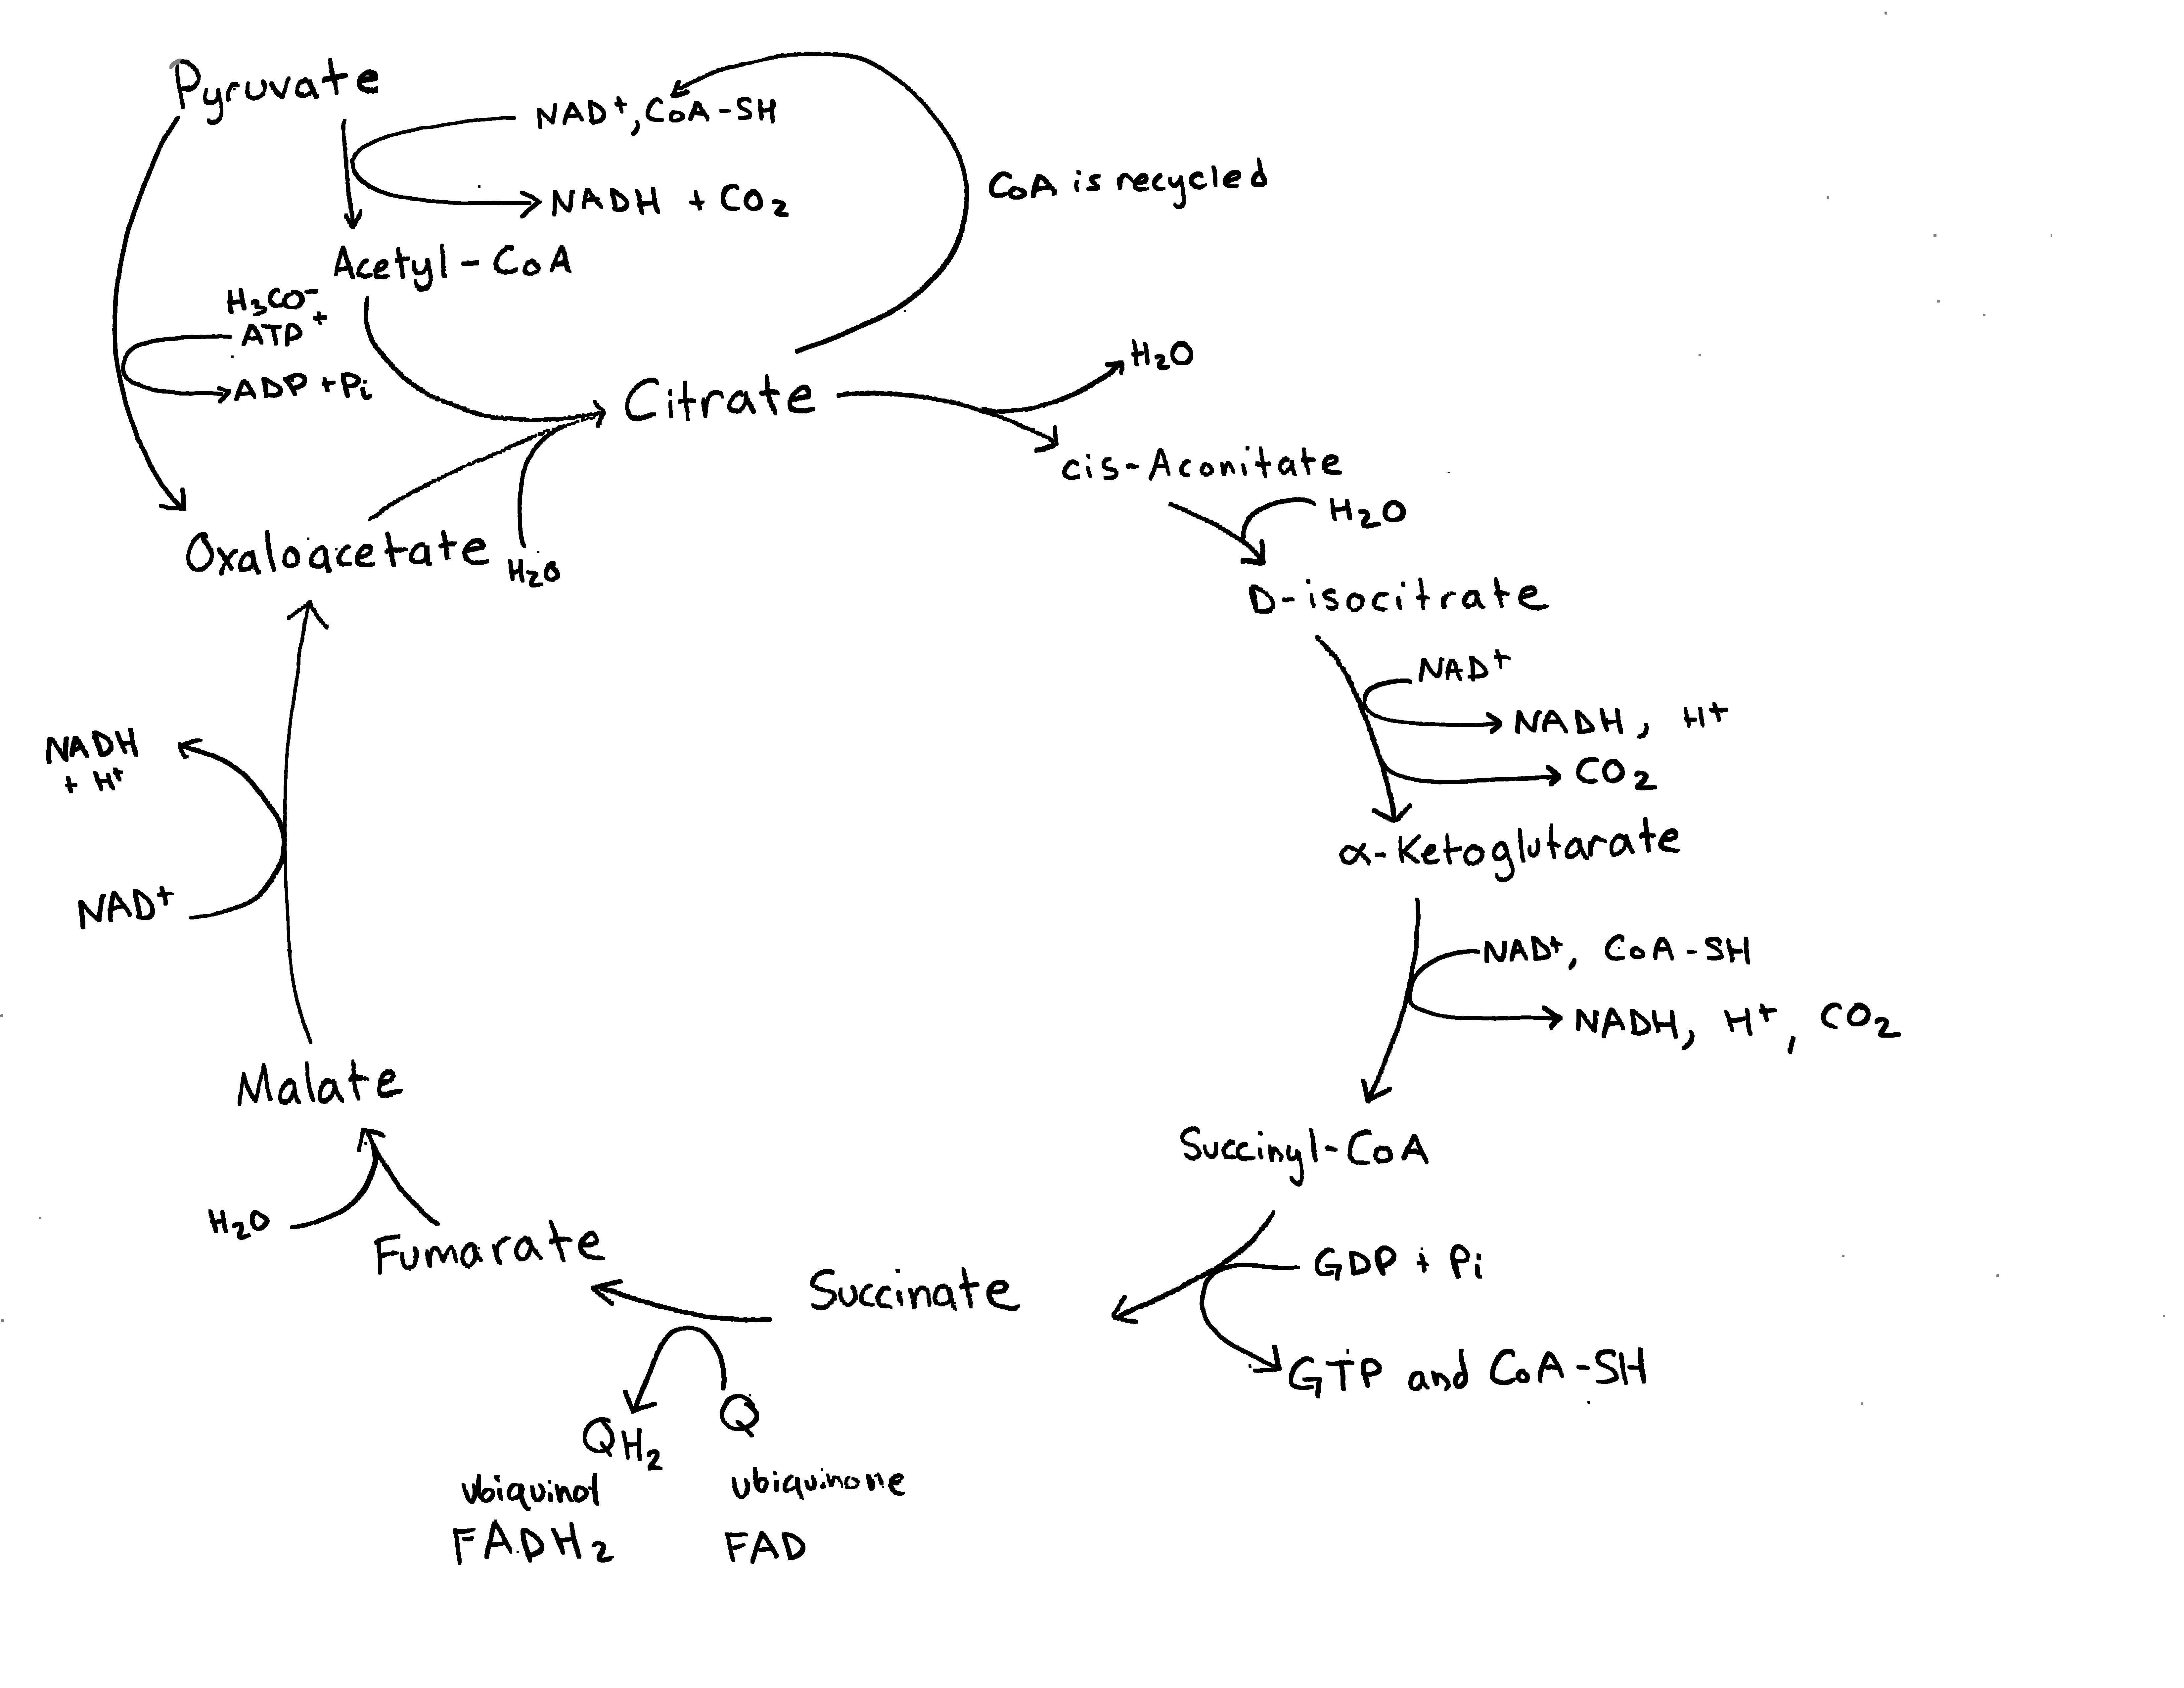 Pyruvate
NAD⁺, CoA-SH
NADH + CO₂
CoA is recycled
Acetyl-CoA
H₃CO⁻
ATP⁺
ADP + Pi
Citrate
H₂O
cis-Aconitate
H₂O
Oxaloacetate
H₂O
D-isocitrate
NAD⁺
NADH, H⁺
CO₂
α-Ketoglutarate
NADH
+ H⁺
NAD⁺
NAD⁺, CoA-SH
NADH, H⁺, CO₂
Malate
Succinyl-CoA
H₂O
Fumarate
Succinate
GDP + Pi
GTP and CoA-SH
QH₂
Q
ubiquinol
ubiquinone
FADH₂
FAD